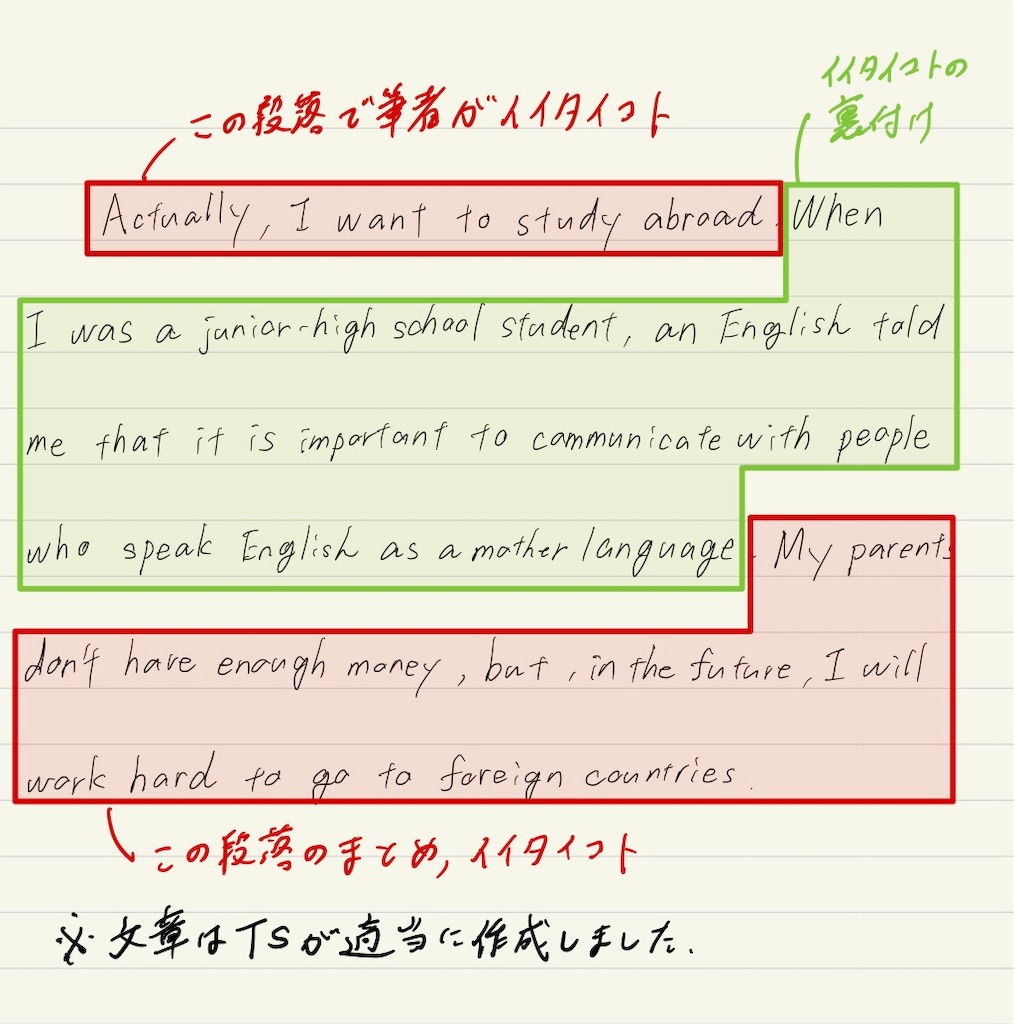 イイタイコトの
裏付け
この段落で筆者がイイタイコト
Actually, I want to study abroad. When
I was a junior-high school student, an English told
me that it is important to communicate with people
who speak English as a mother language. My parents
don't have enough money, but, in the future, I will
work hard to go to foreign countries.
この段落のまとめ, イイタイコト
※ 文章はTSが適当に作成しました.